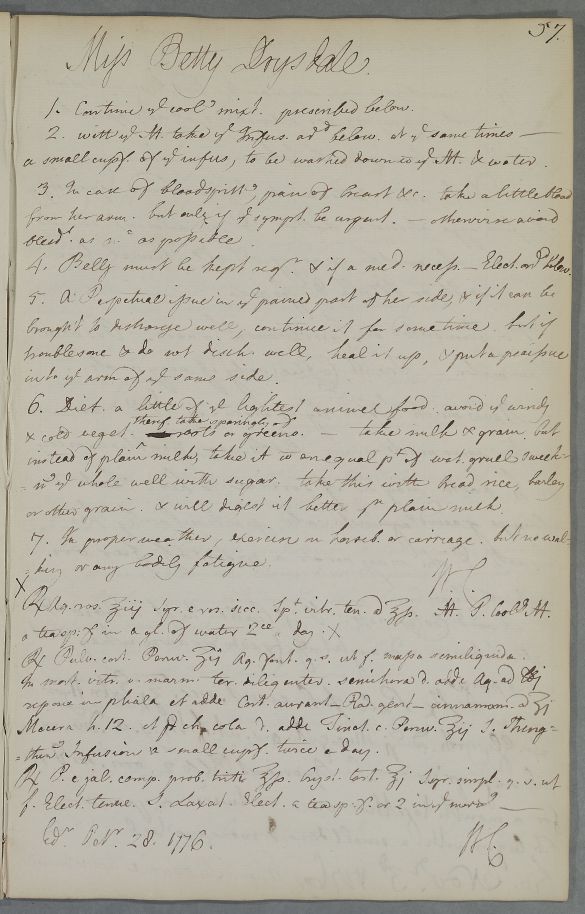 57.
Miss Betty Drysdale.
1. Continue ye cool.g mixt. prescribed below.
2. with ye M. take ye Infus. ord below. at ye same times —
a small cupf. of ye infus, to be washed down w ye M. & water.
3. In case of bloodspitt.g, pain of breast &c. take a little blood
from her arm. but only if ye sympt. be urgent. — otherwise avoid
bleed.g as m. as possible
4. Belly must be kept reg.r & if a med. necess. — Elect. ord below.
5. A Perpetual issue in ye pained part of her side, & if it can be
brought to discharge well, continue it for some time. but if
troublesome & do not disch. well, heal it up, & put a pea issue
into ye arm of ye same side.
6. Diet. a little of ye lightest animal food. avoid ye windy
& cold veget. therf. take sparingly of roots or greens. — take milk & grain. but
instead of plain milk, take it w an equal pt of wat. gruel sweeten
=.g ye whole well with sugar. take this with bread rice, barley
or other grain. & will digest it better yn plain milk.
7. In proper weather, exercise on horseb. or carriage. but no wal-
-king or any bodily fatigue.
W.C.
X
℞ Aq. ros. ℥iij Syr. e ros. sicc. Spt. vitr. ten. a ℥ss. M. S. Cool.g M.
a teasp.f in a gl. of water 2ce a day. X
℞ Pulv. cort. Peruv. ℥ij Aq. font. q. s. ut f. massa semiliquida.
In mort. vitr. v. marm. ter. diligenter. semihora d. adde Aq. ad ℔j
repone in phiala et adde Cort. aurant — Rad. glyc. — cinnamom. a ʒj
Macera h. 12. et p. ch. cola d. adde Tinct. c. Peruv. ℥ij S. Strength-
=then.g Infusion a small cupf. twice a day.
℞ P. e jal. comp. prob. trit. ℥ss. Cryst. tart. ℥j Syr. simpl. q. s. ut
f. Elect. tenue. S. Laxat. Elect. a teasp.f. or 2 in ye morn.g —
Edr. Nr. 28. 1776.
WC